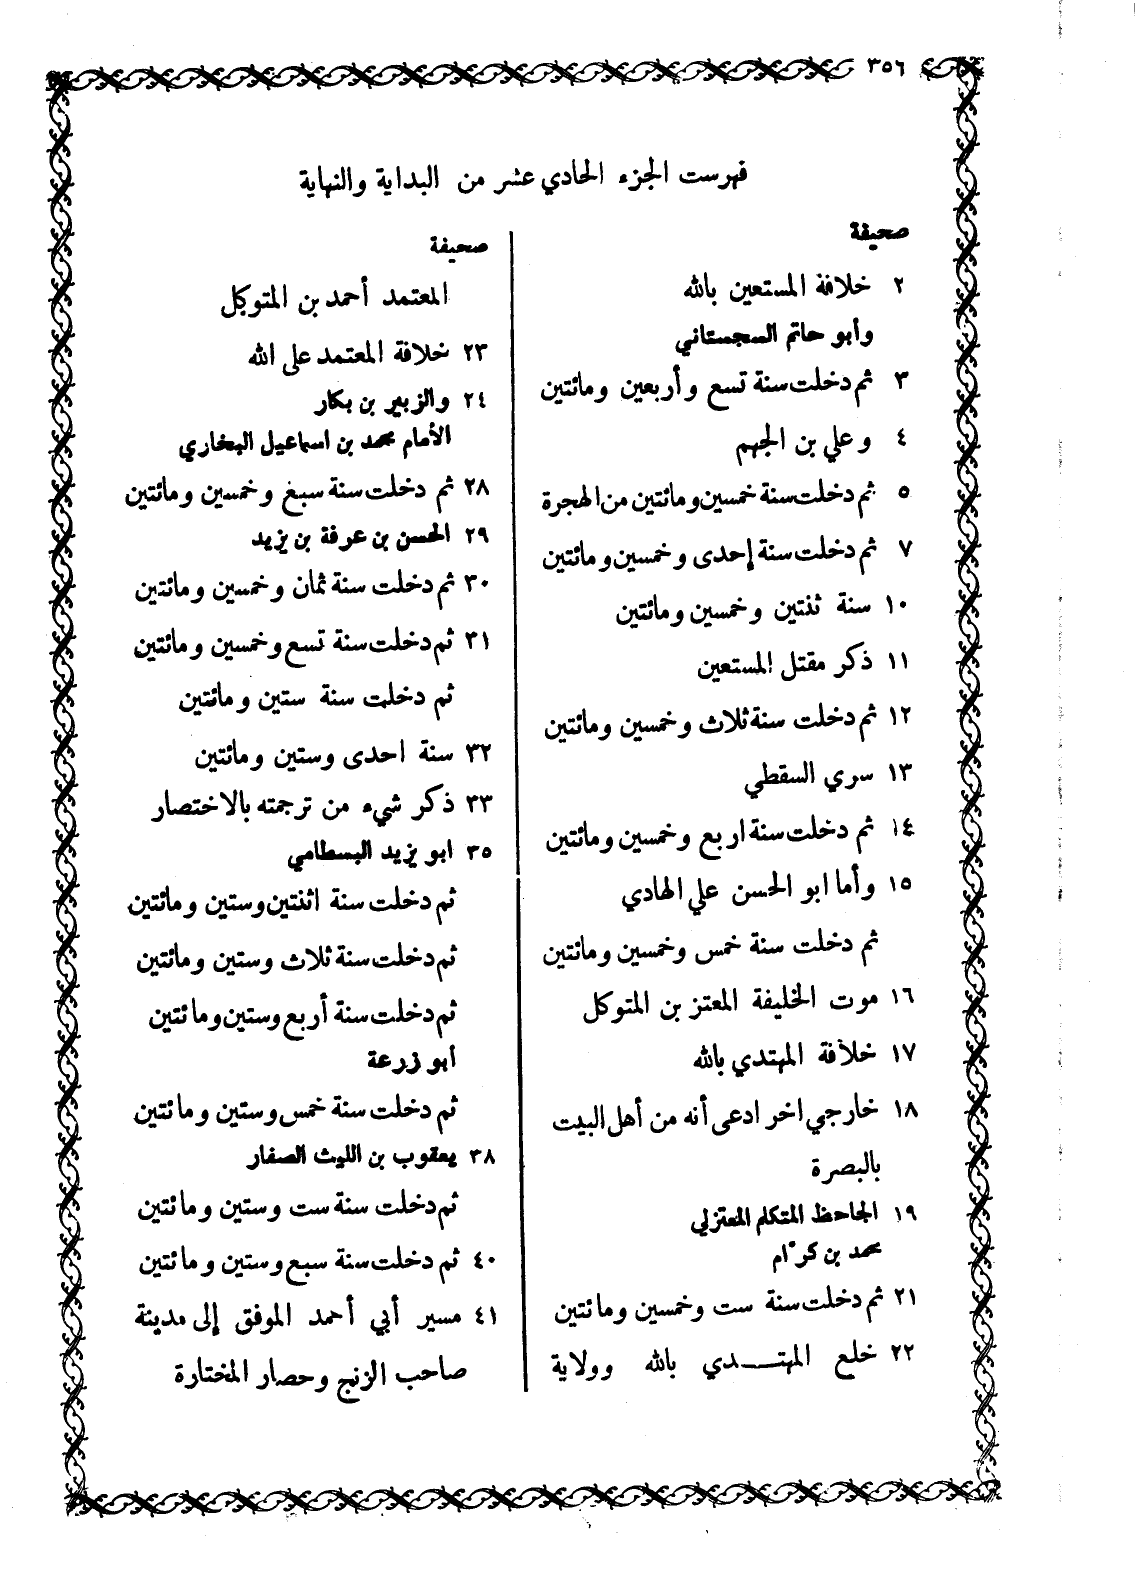 ٣٥٦
فهرست الجزء الحادي عشر من البداية والنهاية
صحيفة
٢ خلافة المستعين بالله
وأبو حاتم السجستاني
٣ ثم دخلت سنة تسع وأربعين ومائتين
٤ وعلي بن الجهم
٥ ثم دخلت سنة خمسين ومائتين من الهجرة
٧ ثم دخلت سنة إحدى وخمسين ومائتين
١٠ سنة ثنتين وخمسين ومائتين
١١ ذكر مقتل المستعين
١٢ ثم دخلت سنة ثلاث وخمسين ومائتين
١٣ سري السقطي
١٤ ثم دخلت سنة اربع وخمسين ومائتين
١٥ وأما ابو الحسن علي الهادي
ثم دخلت سنة خمس وخمسين ومائتين
١٦ موت الخليفة المعتز بن المتوكل
١٧ خلافة المهتدي بالله
١٨ خارجي اخر ادعى أنه من أهل البيت
بالبصرة
١٩ الجاحظ المتكلم المعتزلي
محمد بن كرّام
٢١ ثم دخلت سنة ست وخمسين ومائتين
٢٢ خلع المهتــدي بالله وولاية
صحيفة
المعتمد أحمد بن المتوكل
٢٣ خلافة المعتمد على الله
٢٤ والزبير بن بكار
الأمام محمد بن اسماعيل البخاري
٢٨ ثم دخلت سنة سبغ وخمسين ومائتين
٢٩ الحسن بن عرفة بن يزيد
٣٠ ثم دخلت سنة ثمان وخمسين ومائتين
٣١ ثم دخلت سنة تسع وخمسين ومائتين
ثم دخلت سنة ستين ومائتين
٣٢ سنة احدى وستين ومائتين
٣٣ ذكر شيء من ترجمته بالاختصار
٣٥ ابو يزيد البسطامي
ثم دخلت سنة اثنتين وستين ومائتين
ثم دخلت سنة ثلاث وستين ومائتين
ثم دخلت سنة أربع وستين ومائتين
أبو زرعة
ثم دخلت سنة خمس وستين ومائتين
٣٨ يعقوب بن الليث الصفار
ثم دخلت سنة ست وستين ومائتين
٤٠ ثم دخلت سنة سبع وستين ومائتين
٤١ مسير أبي أحمد الموفق إلى مدينة
صاحب الزنج وحصار المختارة